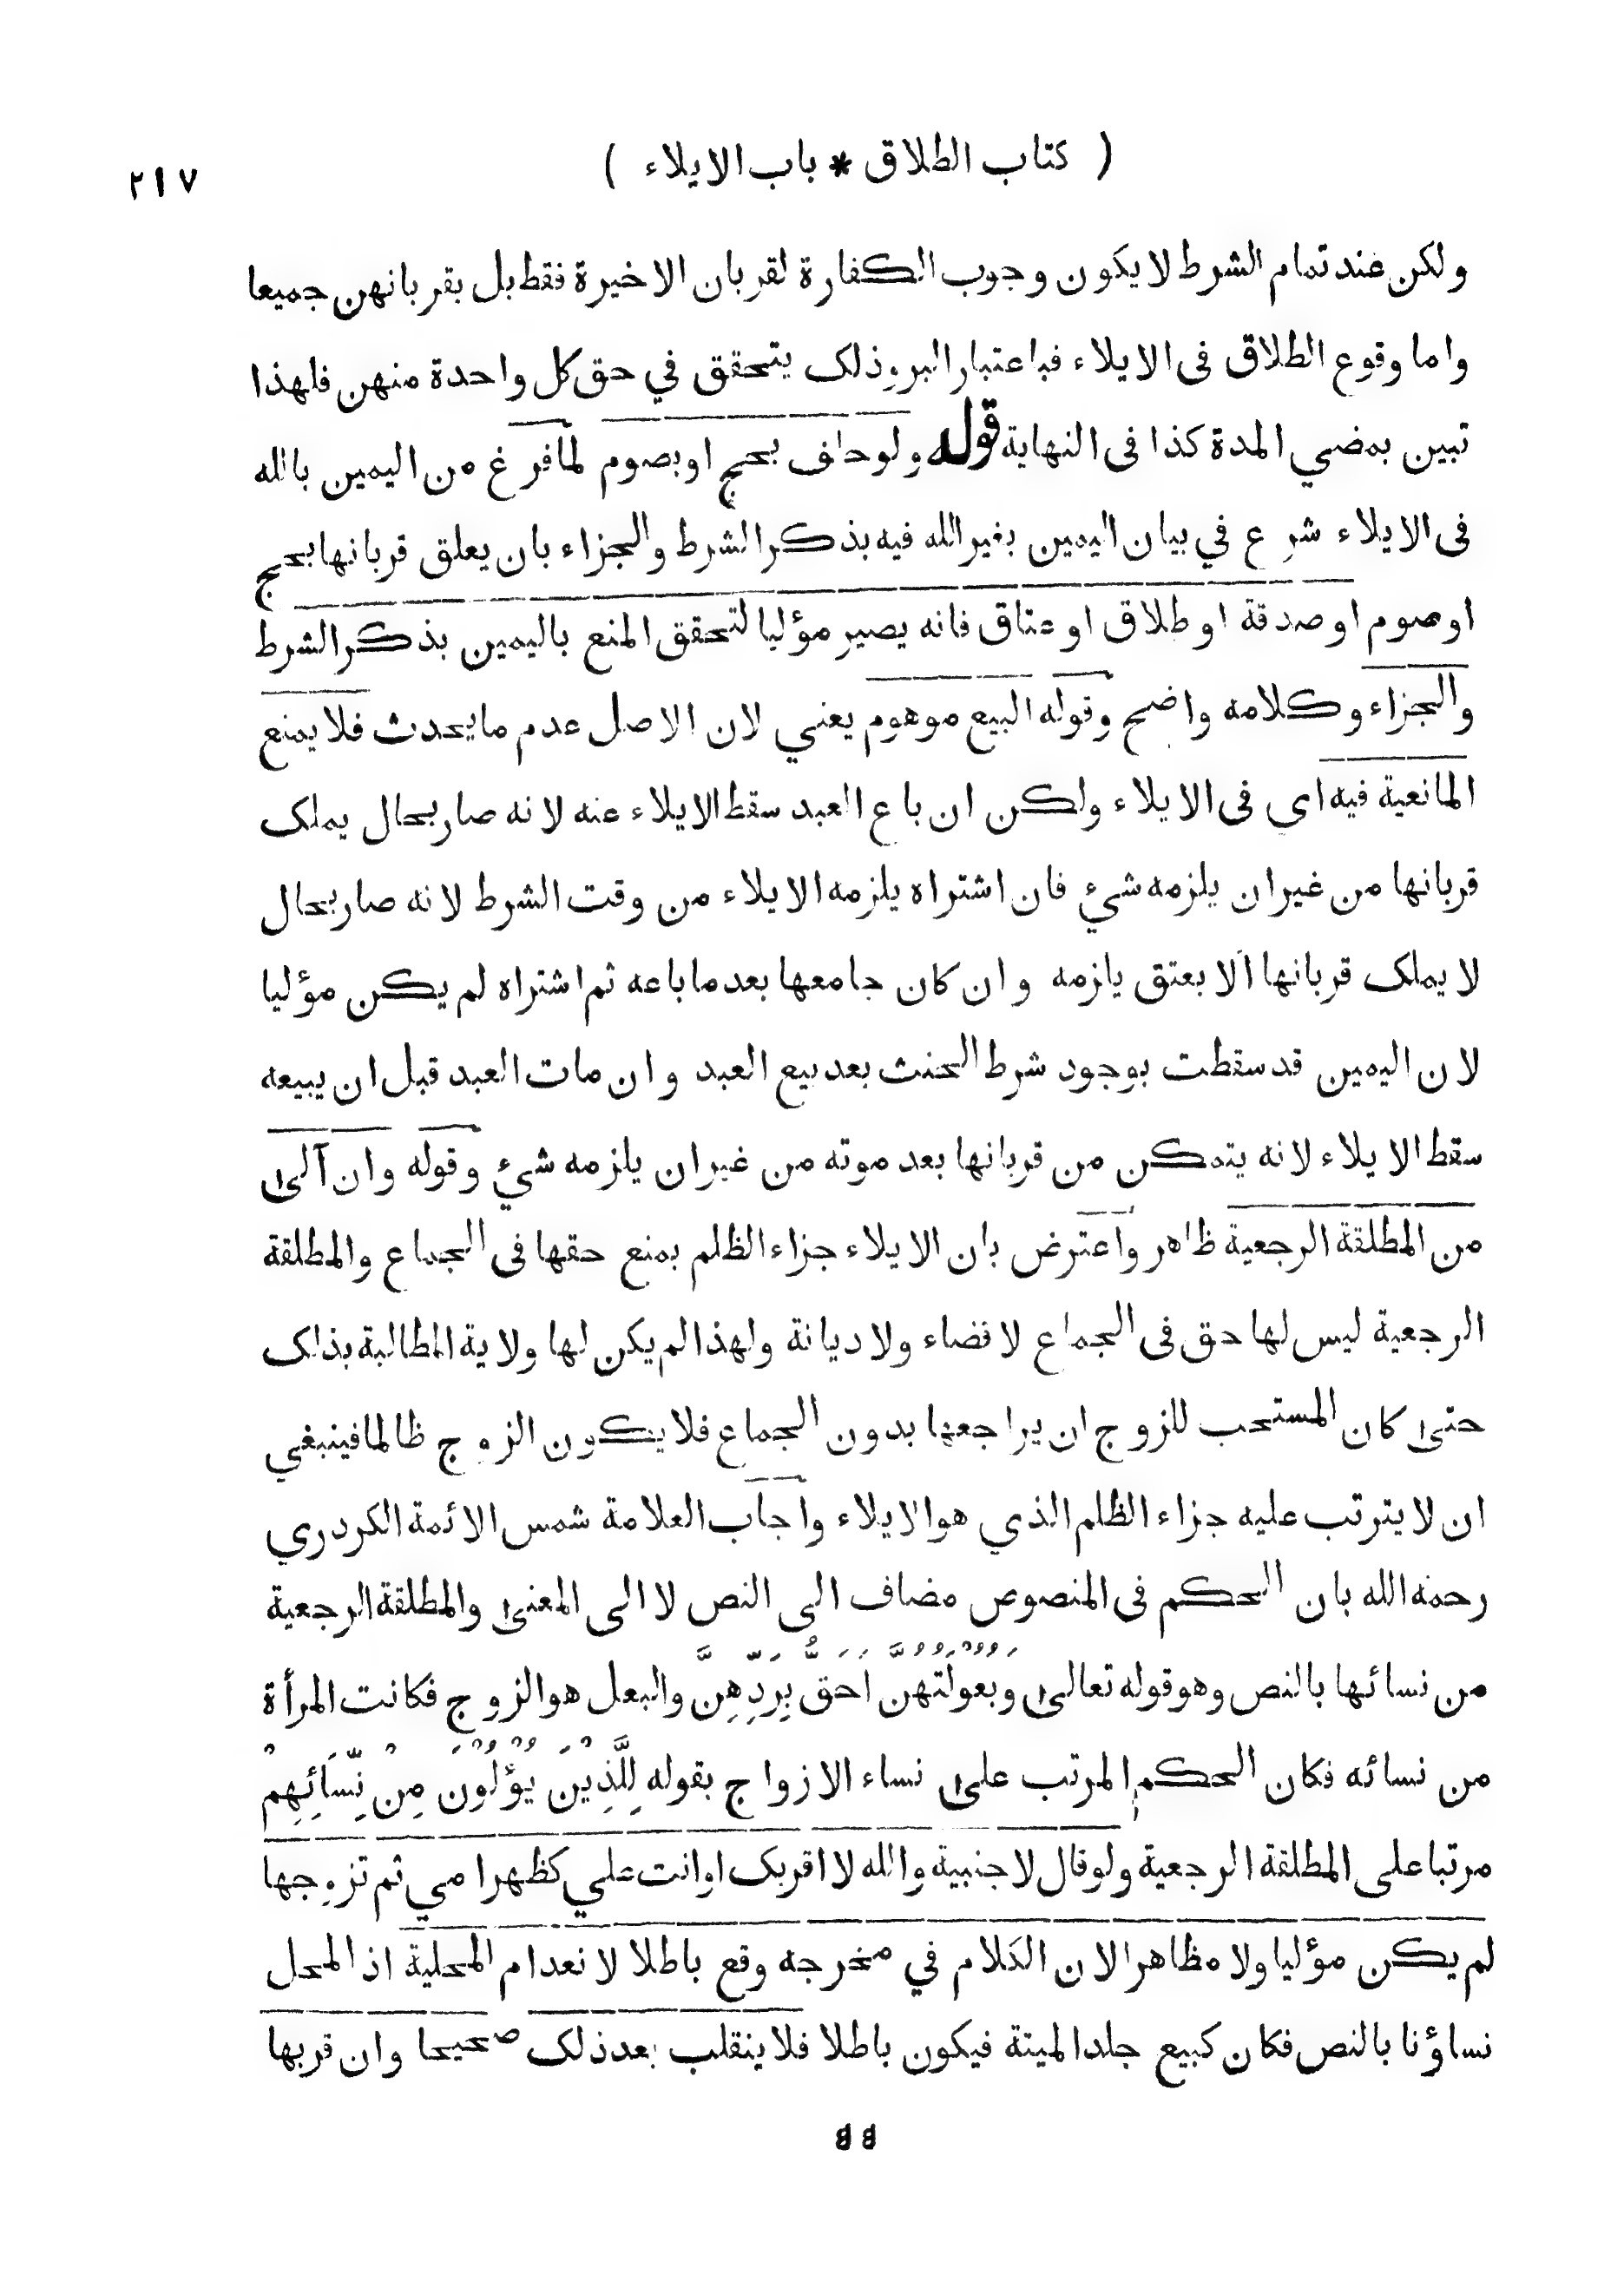 ( كتاب الطلاق * باب الايلاء )
٢١٧
ولكن عند تمام الشرط لا يكون وجوب الكفارة لقربان الاخيرة فقط بل بقربانهن جميعا
واما وقوع الطلاق في الايلاء فباعتبار البر وذلك يتحقق في حق كل واحدة منهن فلهذا
تبين بمضي المدة كذا في النهاية قوله ولو حلف بحج او بصوم لما فرغ من اليمين بالله
في الايلاء شرع في بيان اليمين بغير الله فيه بذكر الشرط والجزاء بان يعلق قربانها بحج
او صوم او صدقة او طلاق او عتاق فانه يصير مؤليا لتحقق المنع باليمين بذكر الشرط
والجزاء وكلامه واضح وقوله البيع موهوم يعني لان الاصل عدم ما يحدث فلا يمنع
المانعية فيه اى في الايلاء ولكن ان باع العبد سقط الايلاء عنه لانه صار بحال يملك
قربانها من غير ان يلزمه شيء فان اشتراه يلزمه الايلاء من وقت الشرط لانه صار بحال
لا يملك قربانها الا بعتق يلزمه وان كان جامعها بعد ما باعه ثم اشتراه لم يكن مؤليا
لان اليمين قد سقطت بوجود شرط الحنث بعد بيع العبد وان مات العبد قبل ان يبيعه
سقط الايلاء لانه يتمكن من قربانها بعد موته من غير ان يلزمه شيء وقوله وان آلى
من المطلقة الرجعية ظاهر واعترض بان الايلاء جزاء الظلم بمنع حقها في الجماع والمطلقة
الرجعية ليس لها حق في الجماع لا قضاء ولا ديانة ولهذا لم يكن لها ولاية المطالبة بذلك
حتى كان المستحب للزوج ان يراجعها بدون الجماع فلا يكون الزوج ظالما فينبغي
ان لا يترتب عليه جزاء الظلم الذي هو الايلاء واجاب العلامة شمس الائمة الكردري
رحمه الله بان الحكم في المنصوص مضاف الى النص لا الى المعنى والمطلقة الرجعية
من نسائها بالنص وهو قوله تعالى وَبُعُولَتُهُنَّ اَحَقُّ بِرَدِّهِنَّ والبعل هو الزوج فكانت المرأة
من نسائه فكان الحكم المرتب على نساء الازواج بقوله لِلَّذِيْنَ يُؤْلُوْنَ مِنْ نِّسَائِهِمْ
مرتبا على المطلقة الرجعية ولو قال لاجنبية والله لا اقربك او انت علي كظهر امي ثم تزوجها
لم يكن مؤليا ولا مظاهرا لان الكلام في مخرجه وقع باطلا لانعدام المحلية اذ المحل
نساؤنا بالنص فكان كبيع جلد الميتة فيكون باطلا فلا ينقلب بعد ذلك صحيحا وان قربها